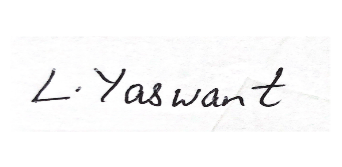 L. Yaswant